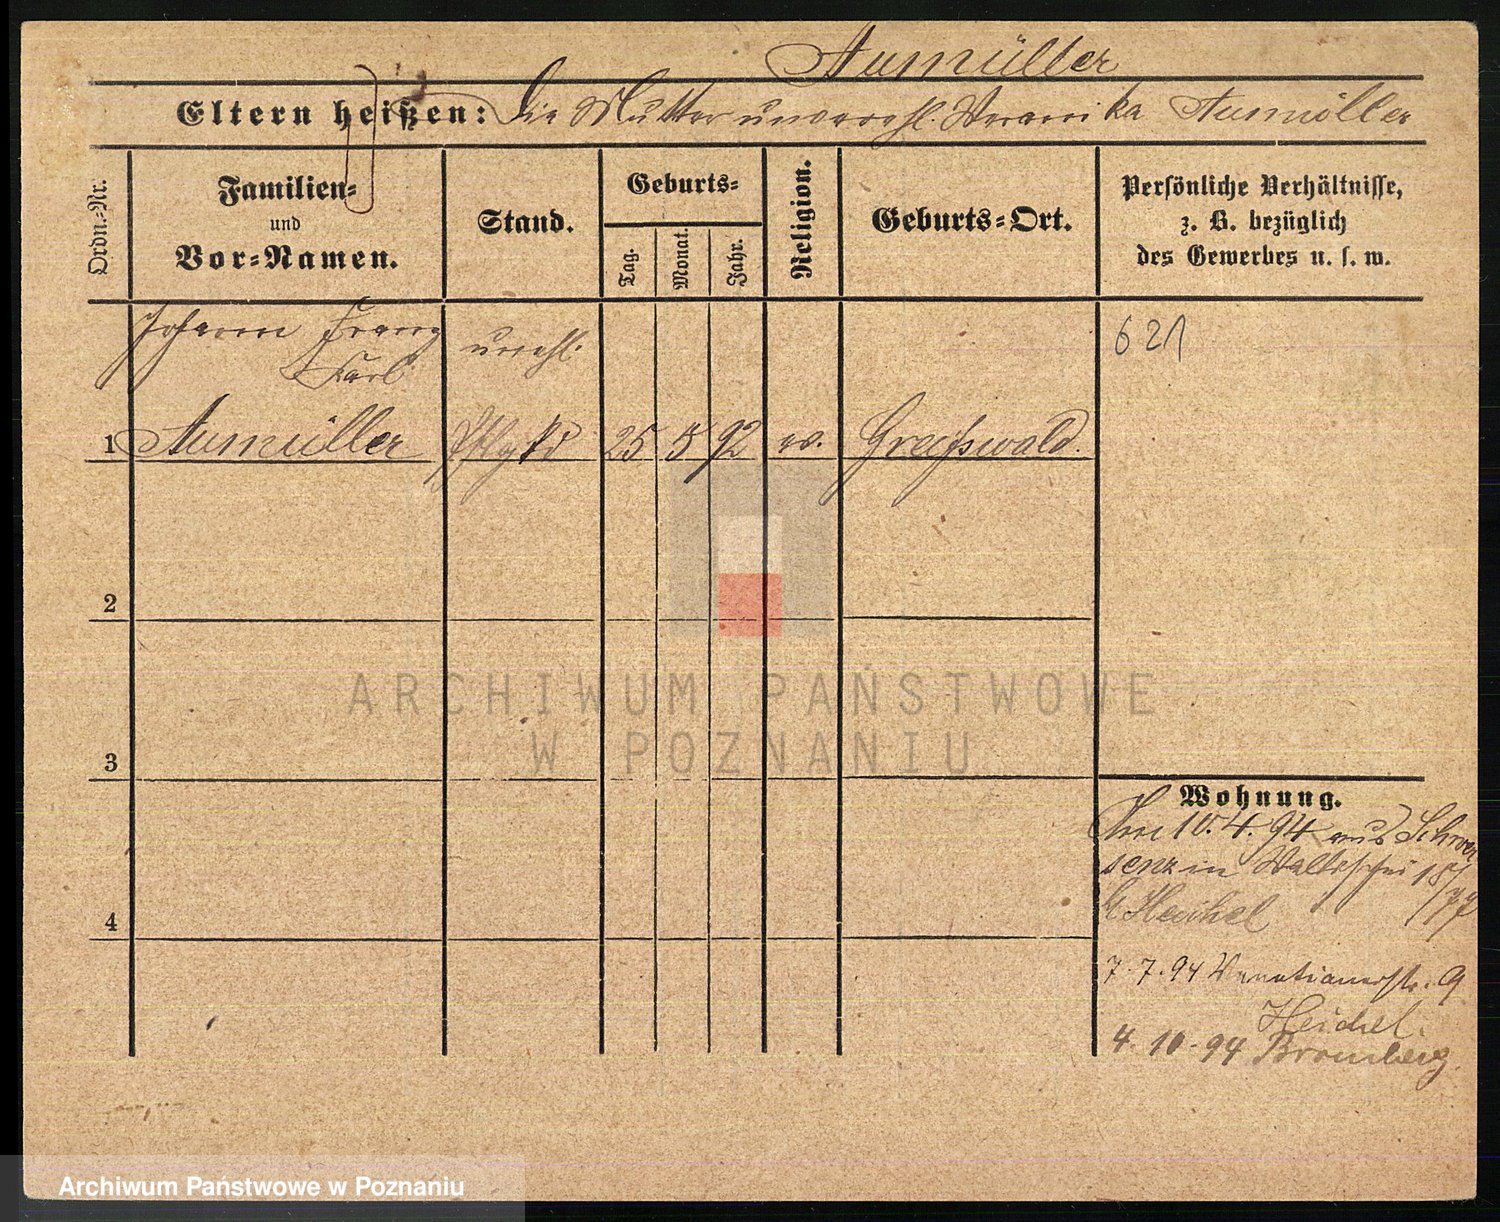 Aumüller
Eltern heißen: Die Mutter unverehl. Veronika Aumüller
Ordn.-Nr.
Familien-
und
Vor-Namen.
Stand.
Geburts-
Tag.
Monat.
Jahr.
Religion.
Geburts-Ort.
Persönliche Verhältnisse,
z. B. bezüglich
des Gewerbes u. s. w.
Johann Franz
Karl
unehl.
621
1 Aumüller Pflgkd 25 5 92 ev. Greifswald.
2
3
4
Wohnung.
10.4.94 aus Schwer
senz in Wallischei 18/
77
Heichel
7.7.94 Venetianerstr. 9
Heichel.
4.10.94 Bromberg.
ARCHIWUM PAŃSTWOWE
W POZNANIU
Archiwum Państwowe w Poznaniu